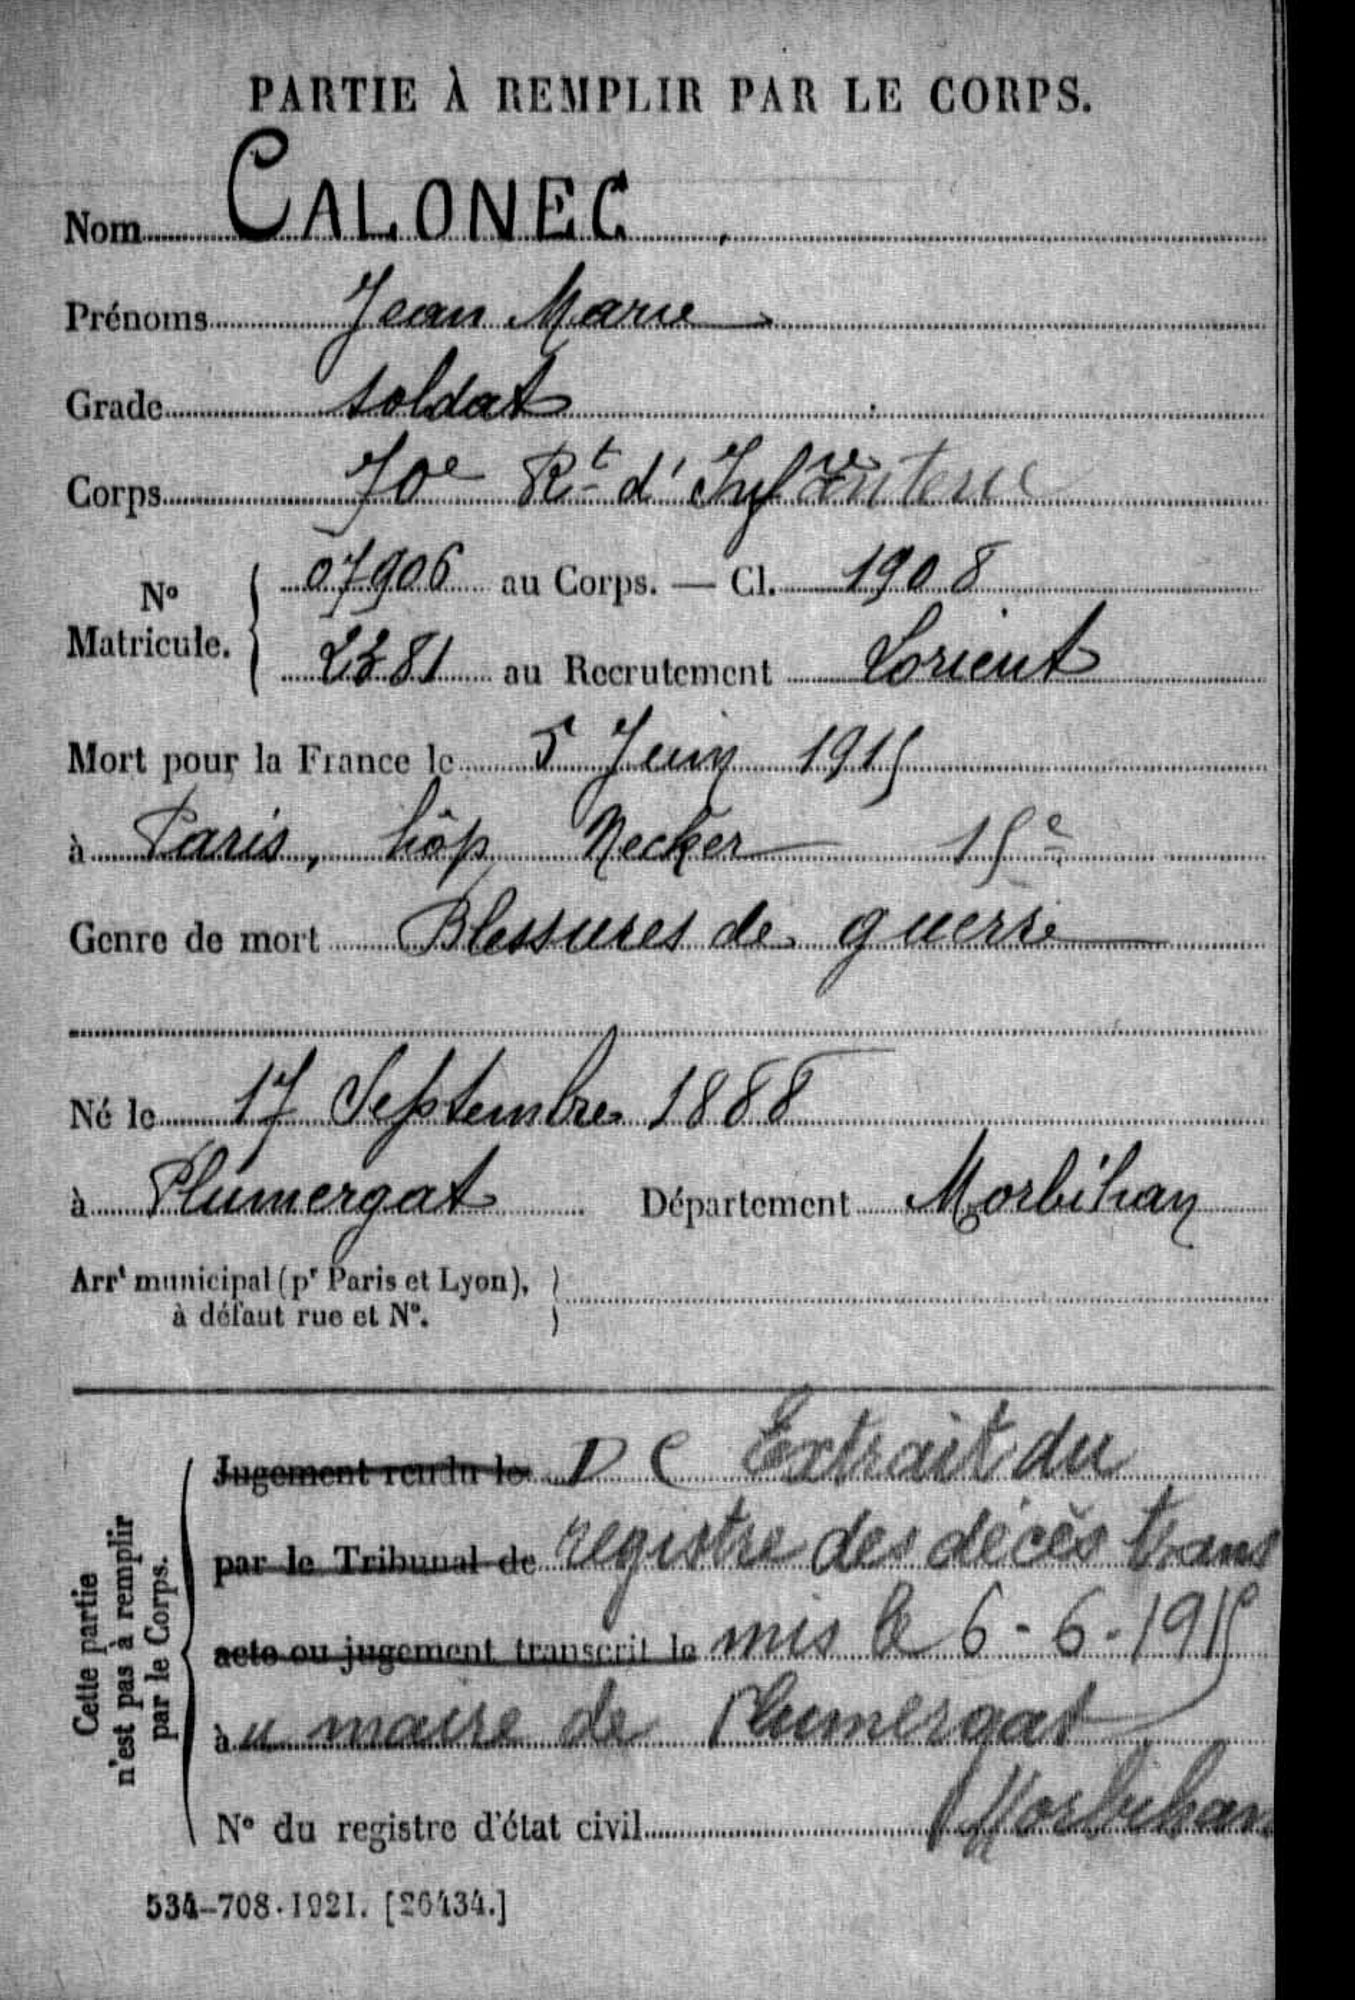 PARTIE À REMPLIR PAR LE CORPS.
Nom CALONEC
Prénoms Jean Marie
Grade soldat
Corps 70e Rt d'Infanterie
No
Matricule.
07906 au Corps. — Cl. 1908
2381 au Recrutement Lorient
Mort pour la France le 5 Juin 1915
à Paris, hôp Necker 15e
Genre de mort Blessures de guerre
Né le 17 Septembre 1888
à Plumergat Département Morbihan
Arrt municipal (pr Paris et Lyon),
à défaut rue et No.
Cette partie
n'est pas à remplir
par le Corps.
Jugement rendu le D C Extrait du
par le Tribunal de registre des décès trans
acte ou jugement transcrit le mis le 6-6-1915
à u maire de Plumergat
Morbihan
No du registre d'état civil
534-708.1921. [26434.]